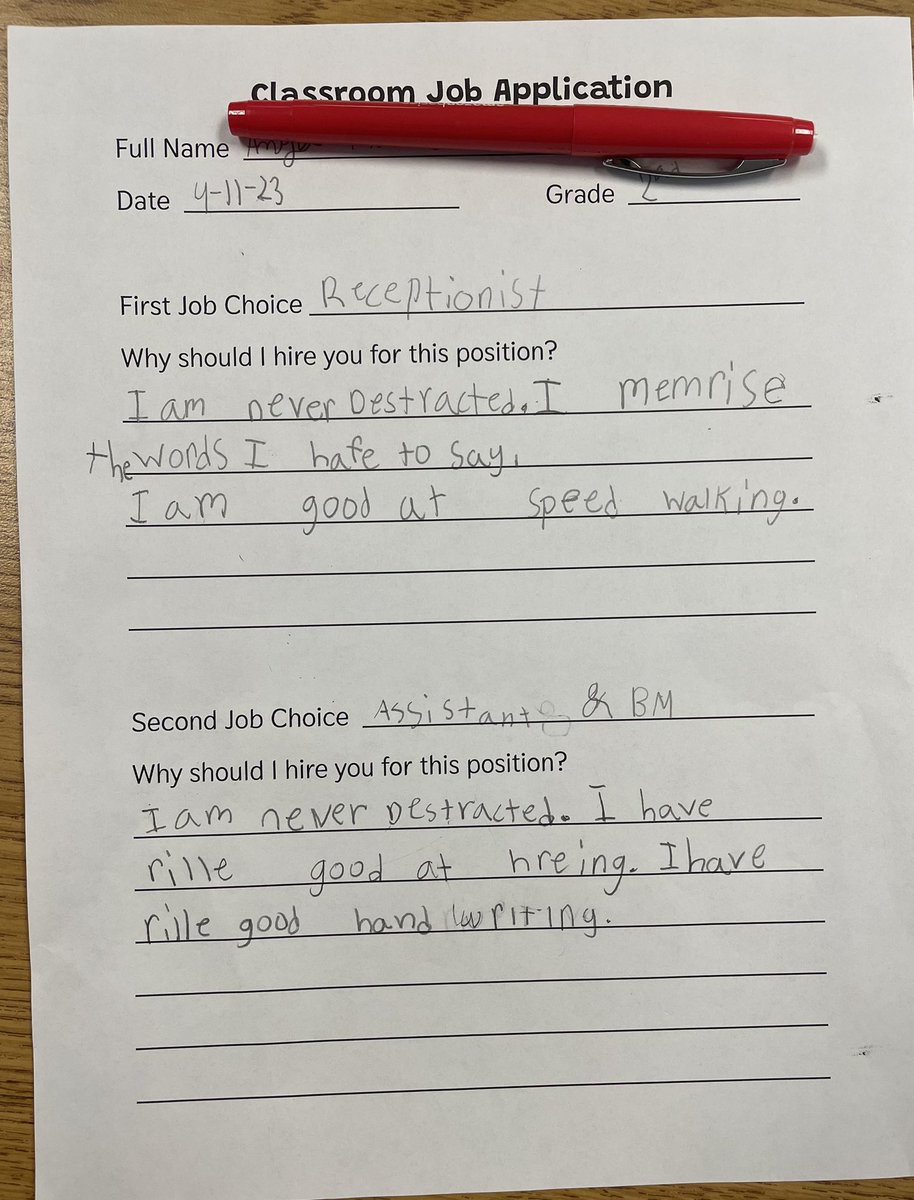 Classroom Job Application
Full Name
Date 4-11-23 Grade 2nd
First Job Choice Receptionist
Why should I hire you for this position?
I am never Destracted. I memrise
the words I hafe to say.
I am good at speed walking.
Second Job Choice Assistant & BM
Why should I hire you for this position?
I am never Destracted. I have
rille good at hreing. I have
rille good hand writing.